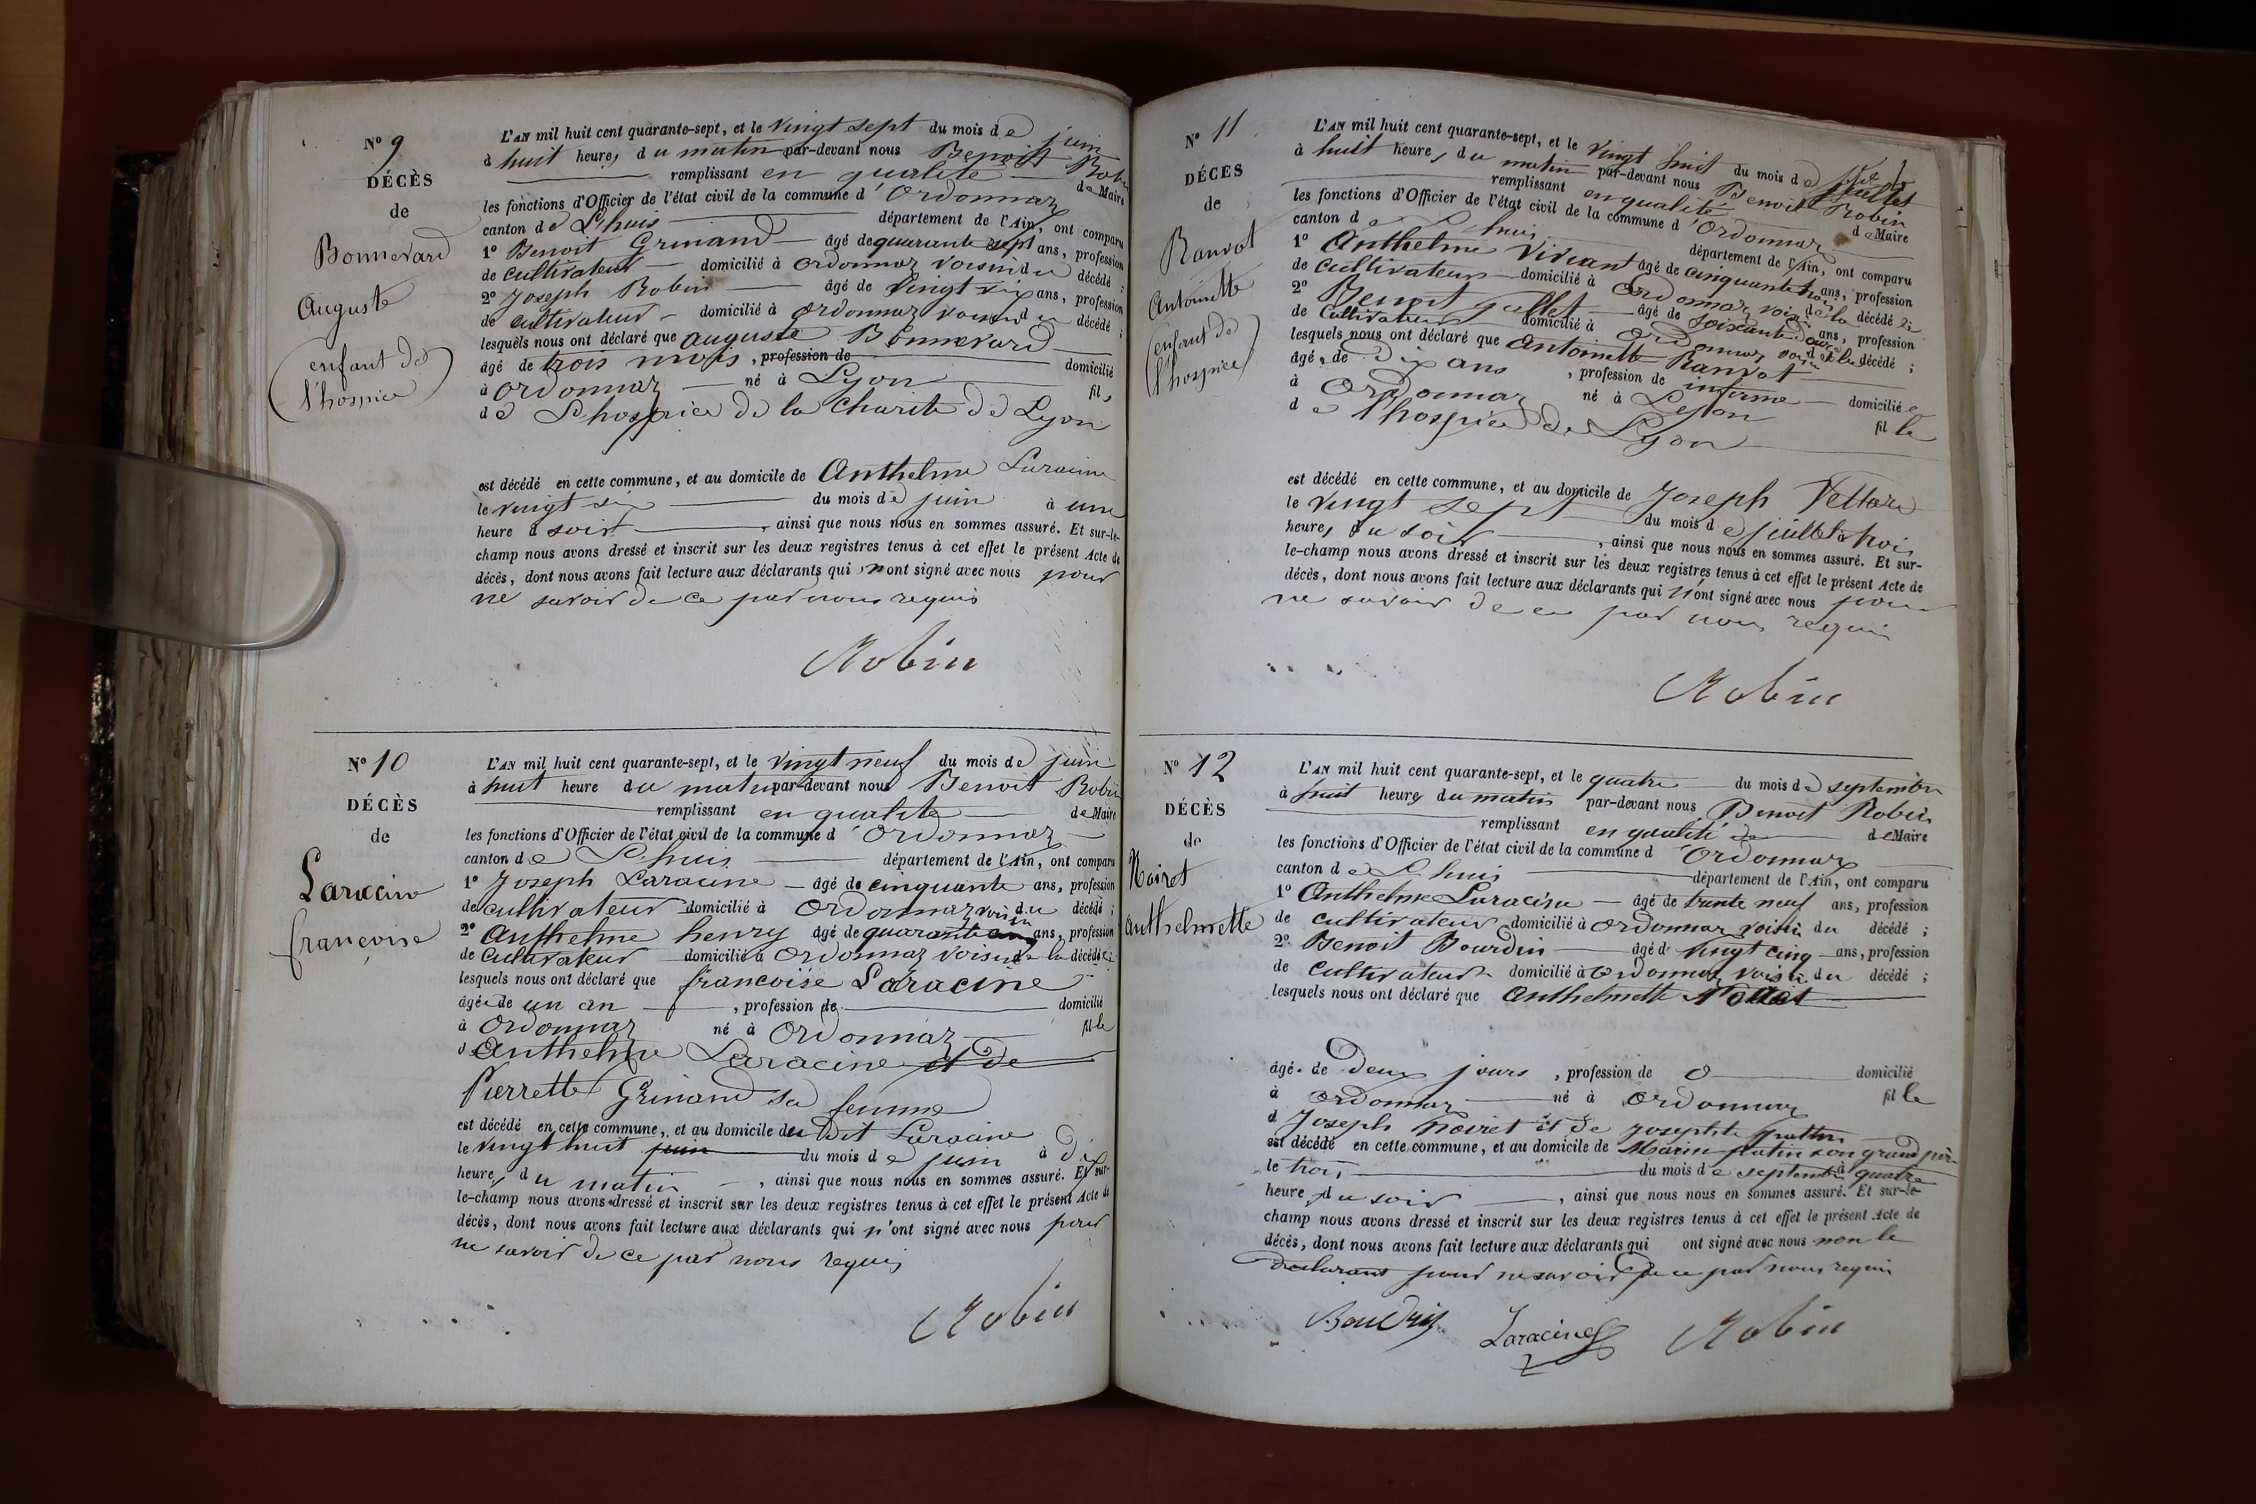 N° 9
DÉCÈS
de
Bonnevard
Auguste
(enfant de
l'hospice)
L'AN mil huit cent quarante-sept, et le vingt sept du mois de juin
à huit heures du matin par-devant nous Benoit Robin
remplissant en qualité de Maire
les fonctions d'Officier de l'état civil de la commune d'Ordonnaz
canton de L'huis département de l'Ain, ont comparu
1° Benoit Grinand âgé de quarante sept ans, profession
de cultivateur domicilié à Ordonnaz voisin du décédé ;
2° Joseph Robin âgé de vingt six ans, profession
de cultivateur domicilié à Ordonnaz voisin du décédé ;
lesquels nous ont déclaré que auguste Bonnevard
âgé de trois mois, profession de domicilié
à Ordonnaz né à Lyon fils
de L'hospice de la Charité de Lyon
est décédé en cette commune, et au domicile de Anthelme Laracine
le vingt six du mois de juin à une
heure d soir, ainsi que nous nous en sommes assuré. Et sur-le-
champ nous avons dressé et inscrit sur les deux registres tenus à cet effet le présent Acte de
décès, dont nous avons fait lecture aux déclarants qui n'ont signé avec nous pour
ne savoir de ce par nous requis
Robin
N° 10
DÉCÈS
de
Laracine
françoise
L'AN mil huit cent quarante-sept, et le vingt neuf du mois de juin
à huit heure du matin par-devant nous Benoit Robin
remplissant en qualité de Maire
les fonctions d'Officier de l'état civil de la commune d'Ordonnaz
canton de L'huis département de l'Ain, ont comparu
1° Joseph Laracine âgé de cinquante ans, profession
de cultivateur domicilié à Ordonnaz voisin du décédé ;
2° Anthelme henry âgé de quarante ans, profession
de cultivateur domicilié à Ordonnaz voisin de la décédée
lesquels nous ont déclaré que françoise Laracine
âgé de un an, profession de domicilié
à Ordonnaz né à Ordonnaz fille
d Anthelme Laracine et de
Pierrette Grinand sa femme
est décédé en cette commune, et au domicile du dit Laracine
le vingt huit juin du mois de juin à dix
heures du matin, ainsi que nous nous en sommes assuré. Et sur-
le-champ nous avons dressé et inscrit sur les deux registres tenus à cet effet le présent Acte de
décès, dont nous avons fait lecture aux déclarants qui n'ont signé avec nous pour
ne savoir de ce par nous requis
Robin
N° 11
DÉCÈS
de
Ranvot
Antoinette
(enfant de
l'hospice)
L'AN mil huit cent quarante-sept, et le vingt huit du mois de juillet
à huit heures du matin par-devant nous Benoit Robin
remplissant en qualité de Maire
les fonctions d'Officier de l'état civil de la commune d'Ordonnaz
canton de L'huis département de l'Ain, ont comparu
1° Anthelme Viviant âgé de cinquante trois ans, profession
de cultivateur domicilié à Ordonnaz voisin de la décédé
2° Benoit Jullet âgé de soixante douze ans, profession
de Cultivateur domicilié à Ordonnaz voisin de la décédé ;
lesquels nous ont déclaré que Antoinette Ranvot
âgé de dix ans, profession de infirme domicilié
à Ordonnaz né à Lyon fille
de l'hospice de Lyon
est décédé en cette commune, et au domicile de Joseph
le vingt sept du mois de juillet à trois
heures du soir, ainsi que nous nous en sommes assuré. Et sur-
le-champ nous avons dressé et inscrit sur les deux registres tenus à cet effet le présent Acte de
décès, dont nous avons fait lecture aux déclarants qui n'ont signé avec nous pour
ne savoir de ce par nous requis
Robin
N° 12
DÉCÈS
de
Noiret
Anthelmette
L'AN mil huit cent quarante-sept, et le quatre du mois de septembre
à huit heures du matin par-devant nous Benoit Robin
remplissant en qualité de de Maire
les fonctions d'Officier de l'état civil de la commune d'Ordonnaz
canton de L'huis département de l'Ain, ont comparu
1° Anthelme Laracine âgé de trente neuf ans, profession
de cultivateur domicilié à Ordonnaz voisin du décédé ;
2° Benoit Bourdin âgé d vingt cinq ans, profession
de Cultivateur domicilié à Ordonnaz voisin du décédé ;
lesquels nous ont déclaré que Anthelmette
âgé de deux jours, profession de 0 domicilié
à Ordonnaz né à Ordonnaz fille
d Joseph Noiret et de Josephte
est décédé en cette commune, et au domicile de Marin son grand père
le trois du mois de septembre à quatre
heures du soir, ainsi que nous nous en sommes assuré. Et sur-le-
champ nous avons dressé et inscrit sur les deux registres tenus à cet effet le présent Acte de
décès, dont nous avons fait lecture aux déclarants qui ont signé avec nous non le
declarant pour ne savoir de ce par nous requis
Bourdin Laracine Robin